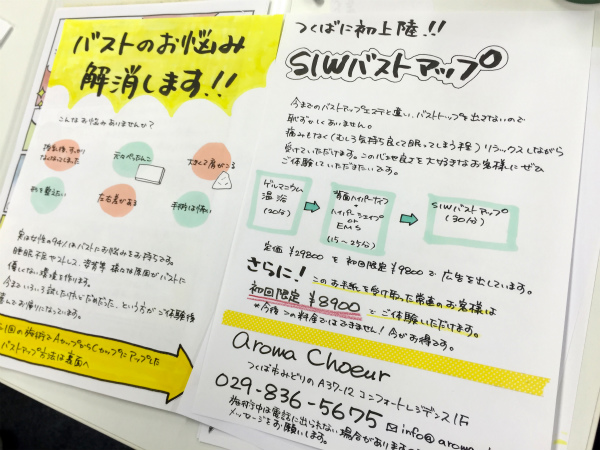 バストのお悩み
解消します!!
こんなお悩みありませんか?
授乳後、すっかり
なくなってしまった
元々ぺたんこ
大きくて肩がこる
形を整えたい
左右差がある
手術は怖い
実は女性の94%はバストにお悩みをお持ちです。
睡眠不足やストレス、姿勢等 様々な原因がバストに
優しくない環境を作ります。
今までいろいろ試したけどだめだった、という方がご体験後
喜んでお帰りになっています。
1回の施術でAカップからCカップにアップした
バストアップ方法は裏面へ
つくばに初上陸!!
SIWバストアップ
今までのバストアップエステと違い、バストトップを出さないので
恥ずかしくありません。
痛みもなく(むしろ気持ち良くて眠ってしまう程)リラックスしながら
受けていただけます。この心地良さを大好きなお客様にぜひ
ご体験していただきたいです。
ゲルマニウム
温浴
(20分)
背面ハイパーナイフ
+
ハイパーシェイプ
or
EMS
(15〜25分)
SIWバストアップ
(30分)
定価 ¥29800 を 初回限定 ¥9800 で 広告を出しています。
さらに! このお手紙を受け取った常連のお客様は
初回限定 ¥8900 でご体験いただけます。
*今後この料金ではできません!今がお得です。
aroma Choeur
つくば市みどりのA37-12 コンフォートレジデンス1F
029-836-5675 info@aroma
施術中は電話に出られない場合があります
メッセージをお願いします。